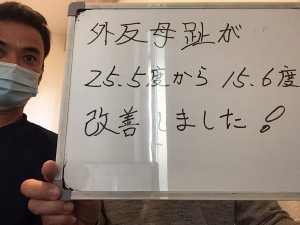 外反母趾が
25.5度から 15.6度
改善しました!